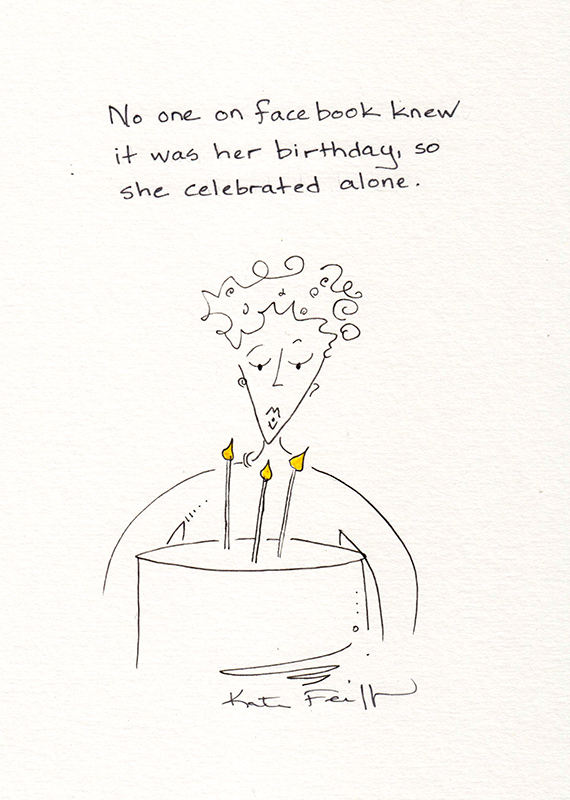 No one on facebook knew
it was her birthday, so
she celebrated alone.
Kate Feiffer